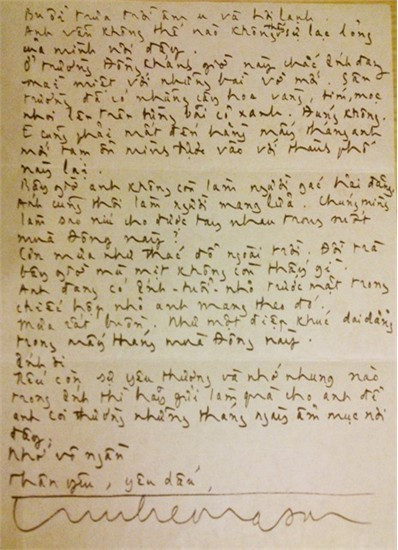 Buổi trưa trời âm u và hơi lạnh.
Anh vẫn không thể nào không thấy sự lạc lõng
của mình nơi đây.
Ở trường Đồng Khánh giờ này chắc Ánh đang
mải miết với những bài vở mới. Sân
trường đã có những cây hoa vàng, tím, mọc
nhơi lên trên từng bãi cỏ xanh. Đúng không.
E cũng phải mất đến hàng mấy tháng anh
mới tạm ổn mình được vào với thành phố
này lại.
Bây giờ anh không còn làm người gác hải đăng
Anh cũng thôi làm người mang lửa. Chúng mình
làm sao níu cho được tay nhau trong suốt
mùa Đông này?
Còn mưa như thác đổ ngoài trời. Đồi trà
bây giờ mù mịt không còn thấy gì.
Anh đang có Ánh-tuổi-nhỏ trước mặt trong
chiếc hộp nhỏ anh mang theo đó.
Mưa rất buồn. Như một điệp khúc dai dẳng
trong mấy tháng mùa Đông này.
Ánh ơi
Nếu còn sự yêu thương và nhớ nhung nào
trong Ánh thì hãy gửi làm quà cho anh để
anh coi thường những tháng ngày ẩm mục nơi
đây.
Nhớ vô ngần
Thân yêu, yêu dấu,